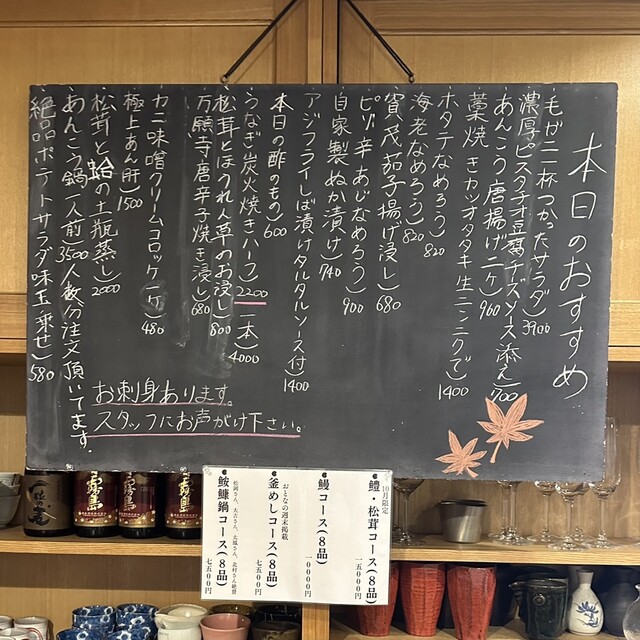 本日のおすすめ
毛ガニ一杯つかったサラダ）3900
濃厚ピスタチオ豆腐チーズソース添え）700
あんこう唐揚げ二ケ）960
藁焼きカツオタタキ生ニンニクで）1400
ホタテなめろう）820
海老なめろう）820
賀茂茄子揚げ浸し）680
ピリ辛あじなめろう）900
自家製ぬか漬け）740
アジフライしば漬けタルタルソース付）1400
本日の酢のもの）600
うなぎ炭火焼きハーフ）2200 一本）4000
松茸とほうれん草のお浸し）800
万願寺唐辛子焼き浸し）680
カニ味噌クリームコロッケ一ケ）480
極上あん肝）1500
松茸と蛤の土瓶蒸し）2000
あんこう鍋（一人前）3500 人数分注文頂いてます.
絶品ポテトサラダ味玉乗せ）580
お刺身あります。
スタッフにお声がけ下さい。
10月限定
鱧・松茸コース（8品）
一五〇〇〇円
鰻コース（8品）
一〇〇〇〇円
おとなの週末掲載
釜めしコース（8品）
七五〇〇円
鮟鱇鍋コース（8品）
七五〇〇円
霧島
霧島
霧島